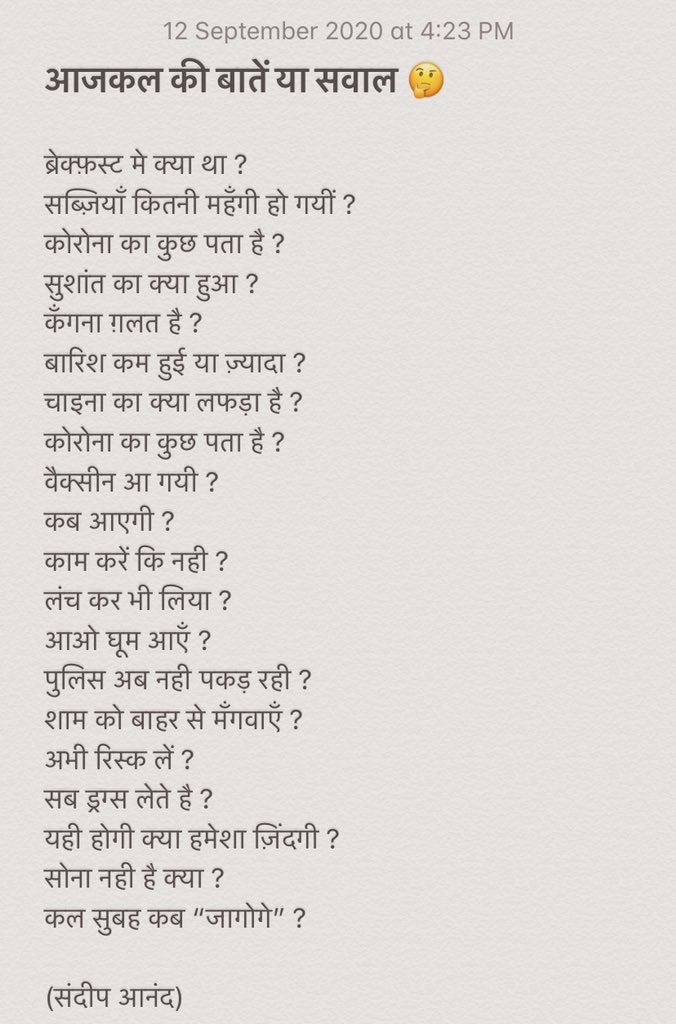 12 September 2020 at 4:23 PM
आजकल की बातें या सवाल 🤔
ब्रेक्फ़स्ट मे क्या था ?
सब्ज़ियाँ कितनी महँगी हो गयीं ?
कोरोना का कुछ पता है ?
सुशांत का क्या हुआ ?
कँगना ग़लत है ?
बारिश कम हुई या ज़्यादा ?
चाइना का क्या लफड़ा है ?
कोरोना का कुछ पता है ?
वैक्सीन आ गयी ?
कब आएगी ?
काम करें कि नही ?
लंच कर भी लिया ?
आओ घूम आएँ ?
पुलिस अब नही पकड़ रही ?
शाम को बाहर से मँगवाएँ ?
अभी रिस्क लें ?
सब ड्रग्स लेते है ?
यही होगी क्या हमेशा ज़िंदगी ?
सोना नही है क्या ?
कल सुबह कब “जागोगे” ?
(संदीप आनंद)